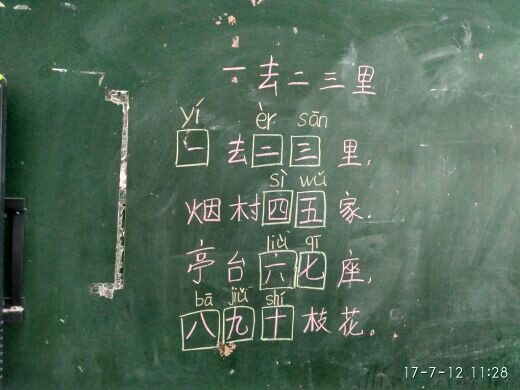 一去二三里
yí èr sān
一去二三里,
sì wǔ
烟村四五家.
liù qī
亭台六七座,
bā jiǔ shí
八九十枝花。
17-7-12 11:28